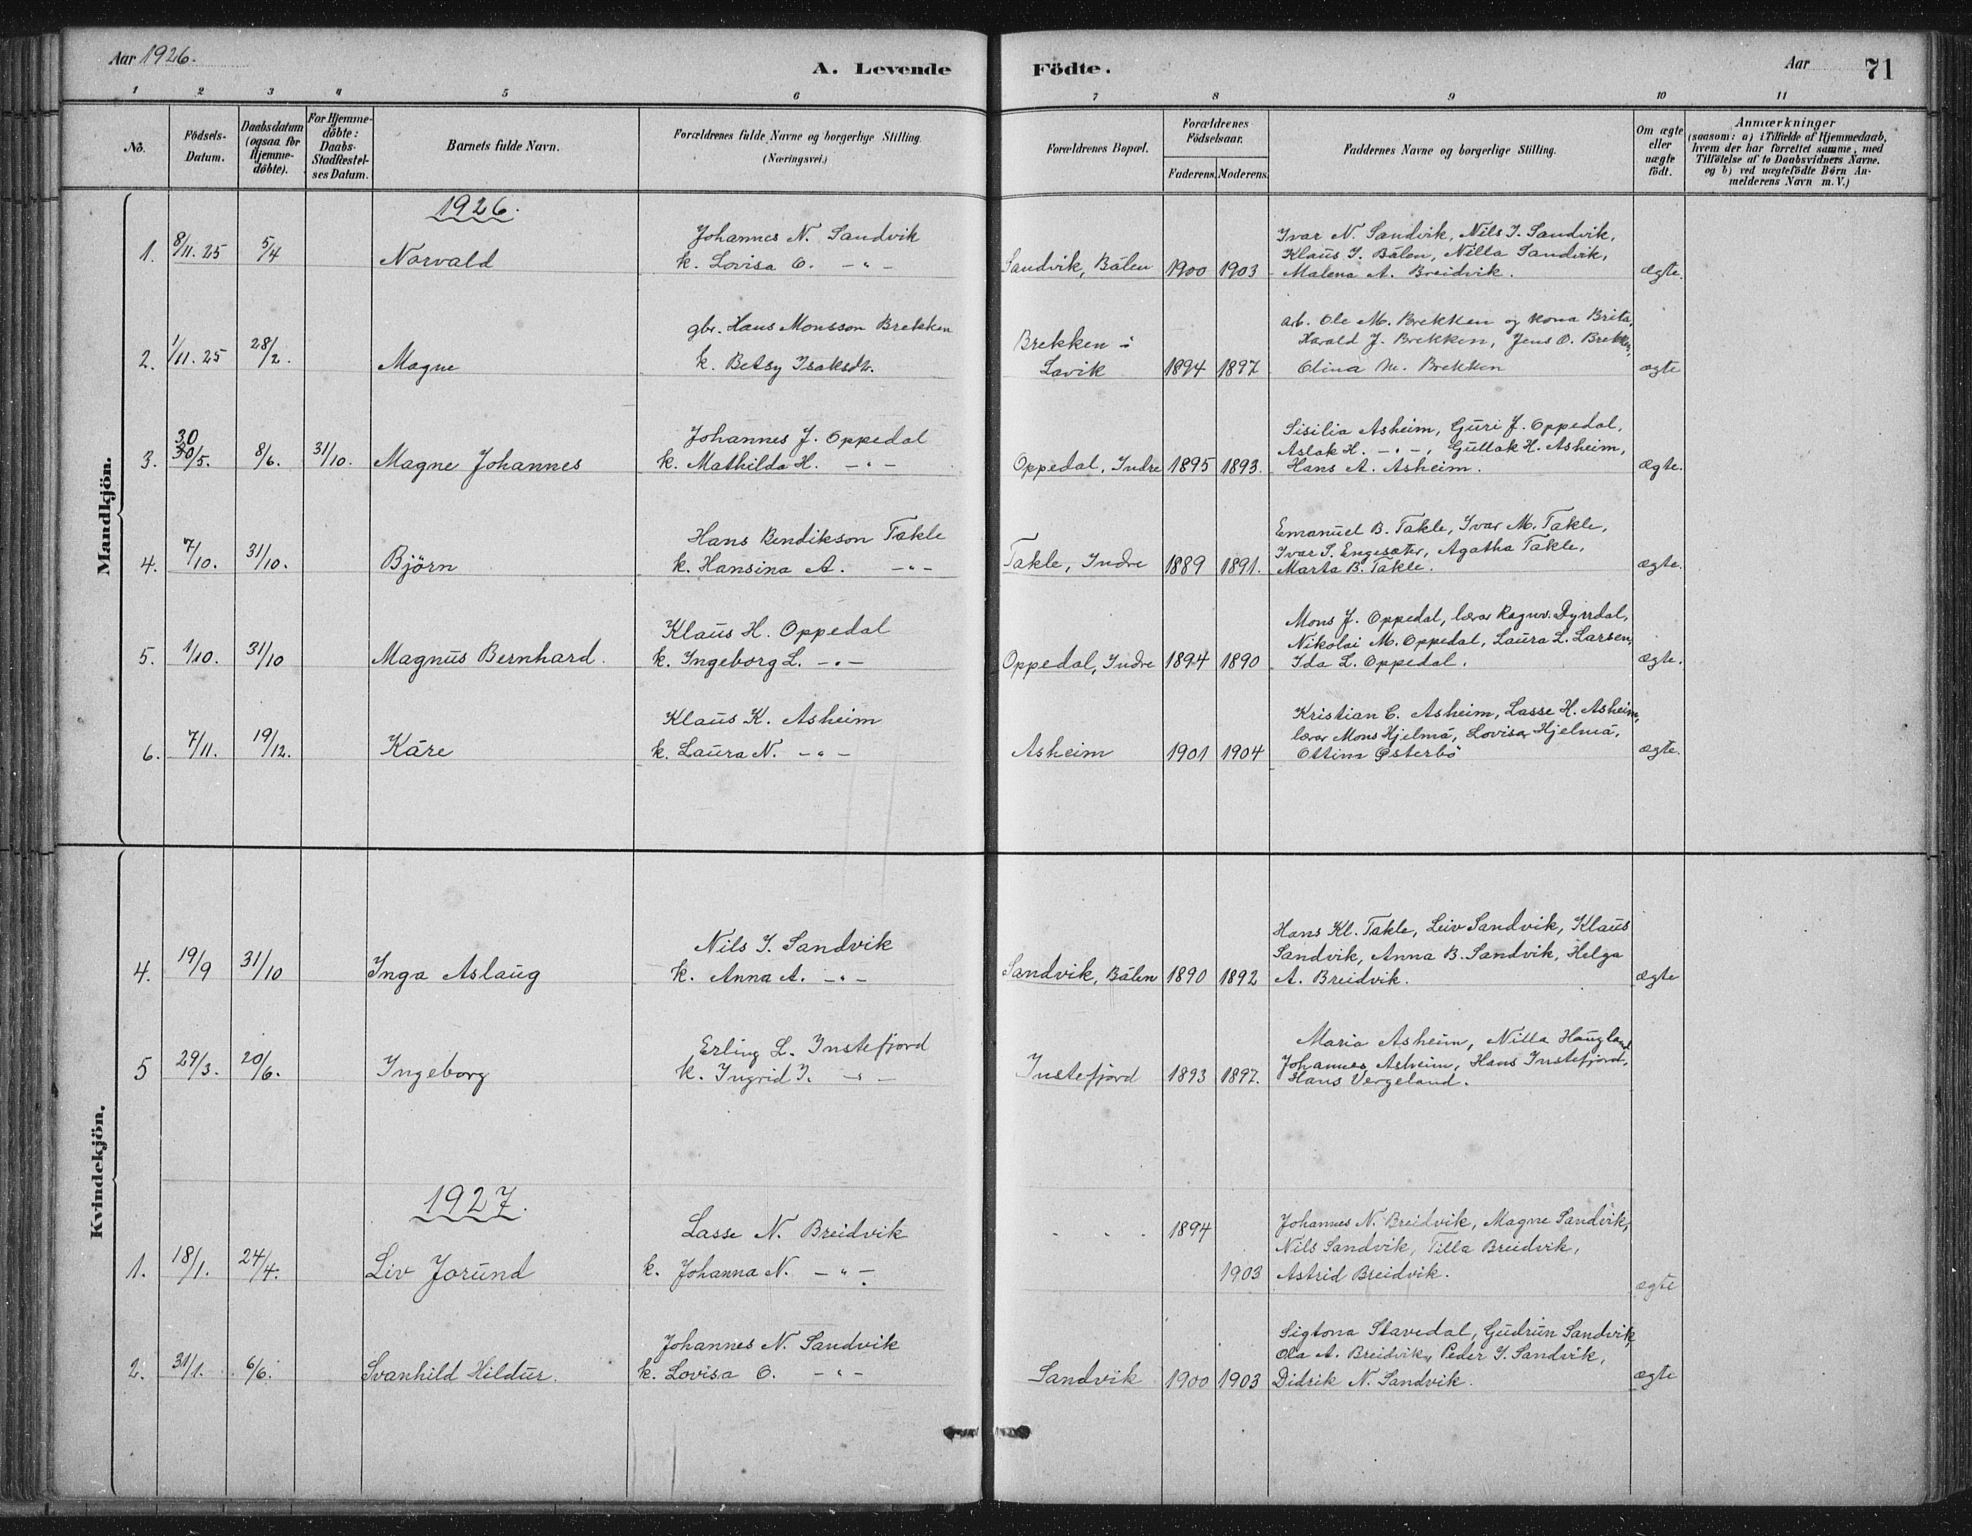 Aar 1926.
A. Levende Födte.
Aar
71
1 2 3 4 5 6 7 8 9 10 11
No.
Födsels-Datum.
Daabsdatum (ogsaa for Hjemme-döbte).
For Hjemme-döbte: Daabs-Stadfæstel-ses Datum.
Barnets fulde Navn.
Forældrenes fulde Navne og borgerlige Stilling.
(Næringsvei.)
Forældrenes Bopæl.
Forældrenes Födselsaar.
Faderens. Moderens.
Faddernes Navne og borgerlige Stilling.
Om ægte eller uægte födt.
Anmærkninger
(saasom: a) i Tilfælde af Hjemmedaab,
hvem der har forrettet samme, med
Tilföielse af to Daabsvidners Navne.
og b) ved uægtefödte Börn An-
melderens Navn m. V.)
Mandkjön.
1926.
Johannes N. Sandvik
Ivar N. Sandvik, Nils I. Sandvik,
Klaus I. Bålen, Nilla Sandvik,
1. 8/11. 25 5/4 Norvald k. Lovisa O. -"- Sandvik, Bålen 1900 1903 Malena A. Breidvik. ægte.
gbr. Hans Monsson Brekken
arb. Ole M. Brekken og kona Brita,
Brekken i
Harald J. Brekken, Jens O. Brekken,
2. 1/11. 25 28/2. Magne k. Betsy Isaksdr. Lavik 1894 1897 Olina M. Brekken ægte
Johannes J. Oppedal
Sisilia Asheim, Guri J. Oppedal,
Aslak H. -"-, Gullak H. Asheim,
3. 30/5. 30 8/6. 31/10. Magne Johannes k. Mathilda H. -"- Oppedal, Indre 1895 1893. Hans A. Asheim. ægte.
Hans Bendikson Takle
Emanuel B. Takle, Ivar M. Takle,
Ivar S. Engesæter, Agatha Takle,
4. 7/10. 31/10. Björn k. Hansina A. -"- Takle, Indre 1889 1891. Marta B. Takle. ægte.
Klaus H. Oppedal
Mons J. Oppedal, lærar Ragnv. Dyrrdal,
Nikolai M. Oppedal, Laura L. Larsen,
5. 1/10. 31/10 Magnus Bernhard. k. Ingeborg L. -"- Oppedal, Indre 1894 1890 Ida L. Oppedal. ægte.
Klaus K. Asheim
Kristian C. Asheim, Lasse H. Asheim,
lærar Mons Hjelmå, Lovisa Hjelmå,
6. 7/11. 19/12. Kåre k. Laura N. -"- Asheim 1901 1904 Ottina Østerbö ægte.
Kvindekjön.
Nils I. Sandvik
Hans Kl. Takle, Leiv Sandvik, Klaus
Sandvik, Anna B. Sandvik, Helga
4. 19/9 31/10 Inga Aslaug k. Anna A. -"- Sandvik, Bålen 1890 1892 A. Breidvik. ægte
Erling L. Instefjord
Maria Asheim, Nilla Haugland
Johannes Asheim, Hans Instefjord,
5 29/3. 20/6. Ingeborg k. Ingrid I. -"- Instefjord 1893 1897. Hans Vergeland.
1927.
Lasse N. Breidvik
1894 Johannes N. Breidvik, Magne Sandvik,
Nils Sandvik, Tilla Breidvik,
1. 18/1. 24/4. Liv Jorund k. Johanna N. -"- 1903 Astrid Breidvik. ægte
Johannes N. Sandvik
Sigtona Stavedal, Gudrun Sandvik,
Ola A. Breidvik, Peder I. Sandvik,
2. 31/1. 6/6. Svanhild Hildur. k. Lovisa O. -"- Sandvik 1900 1903 Didrik N. Sandvik. ægte